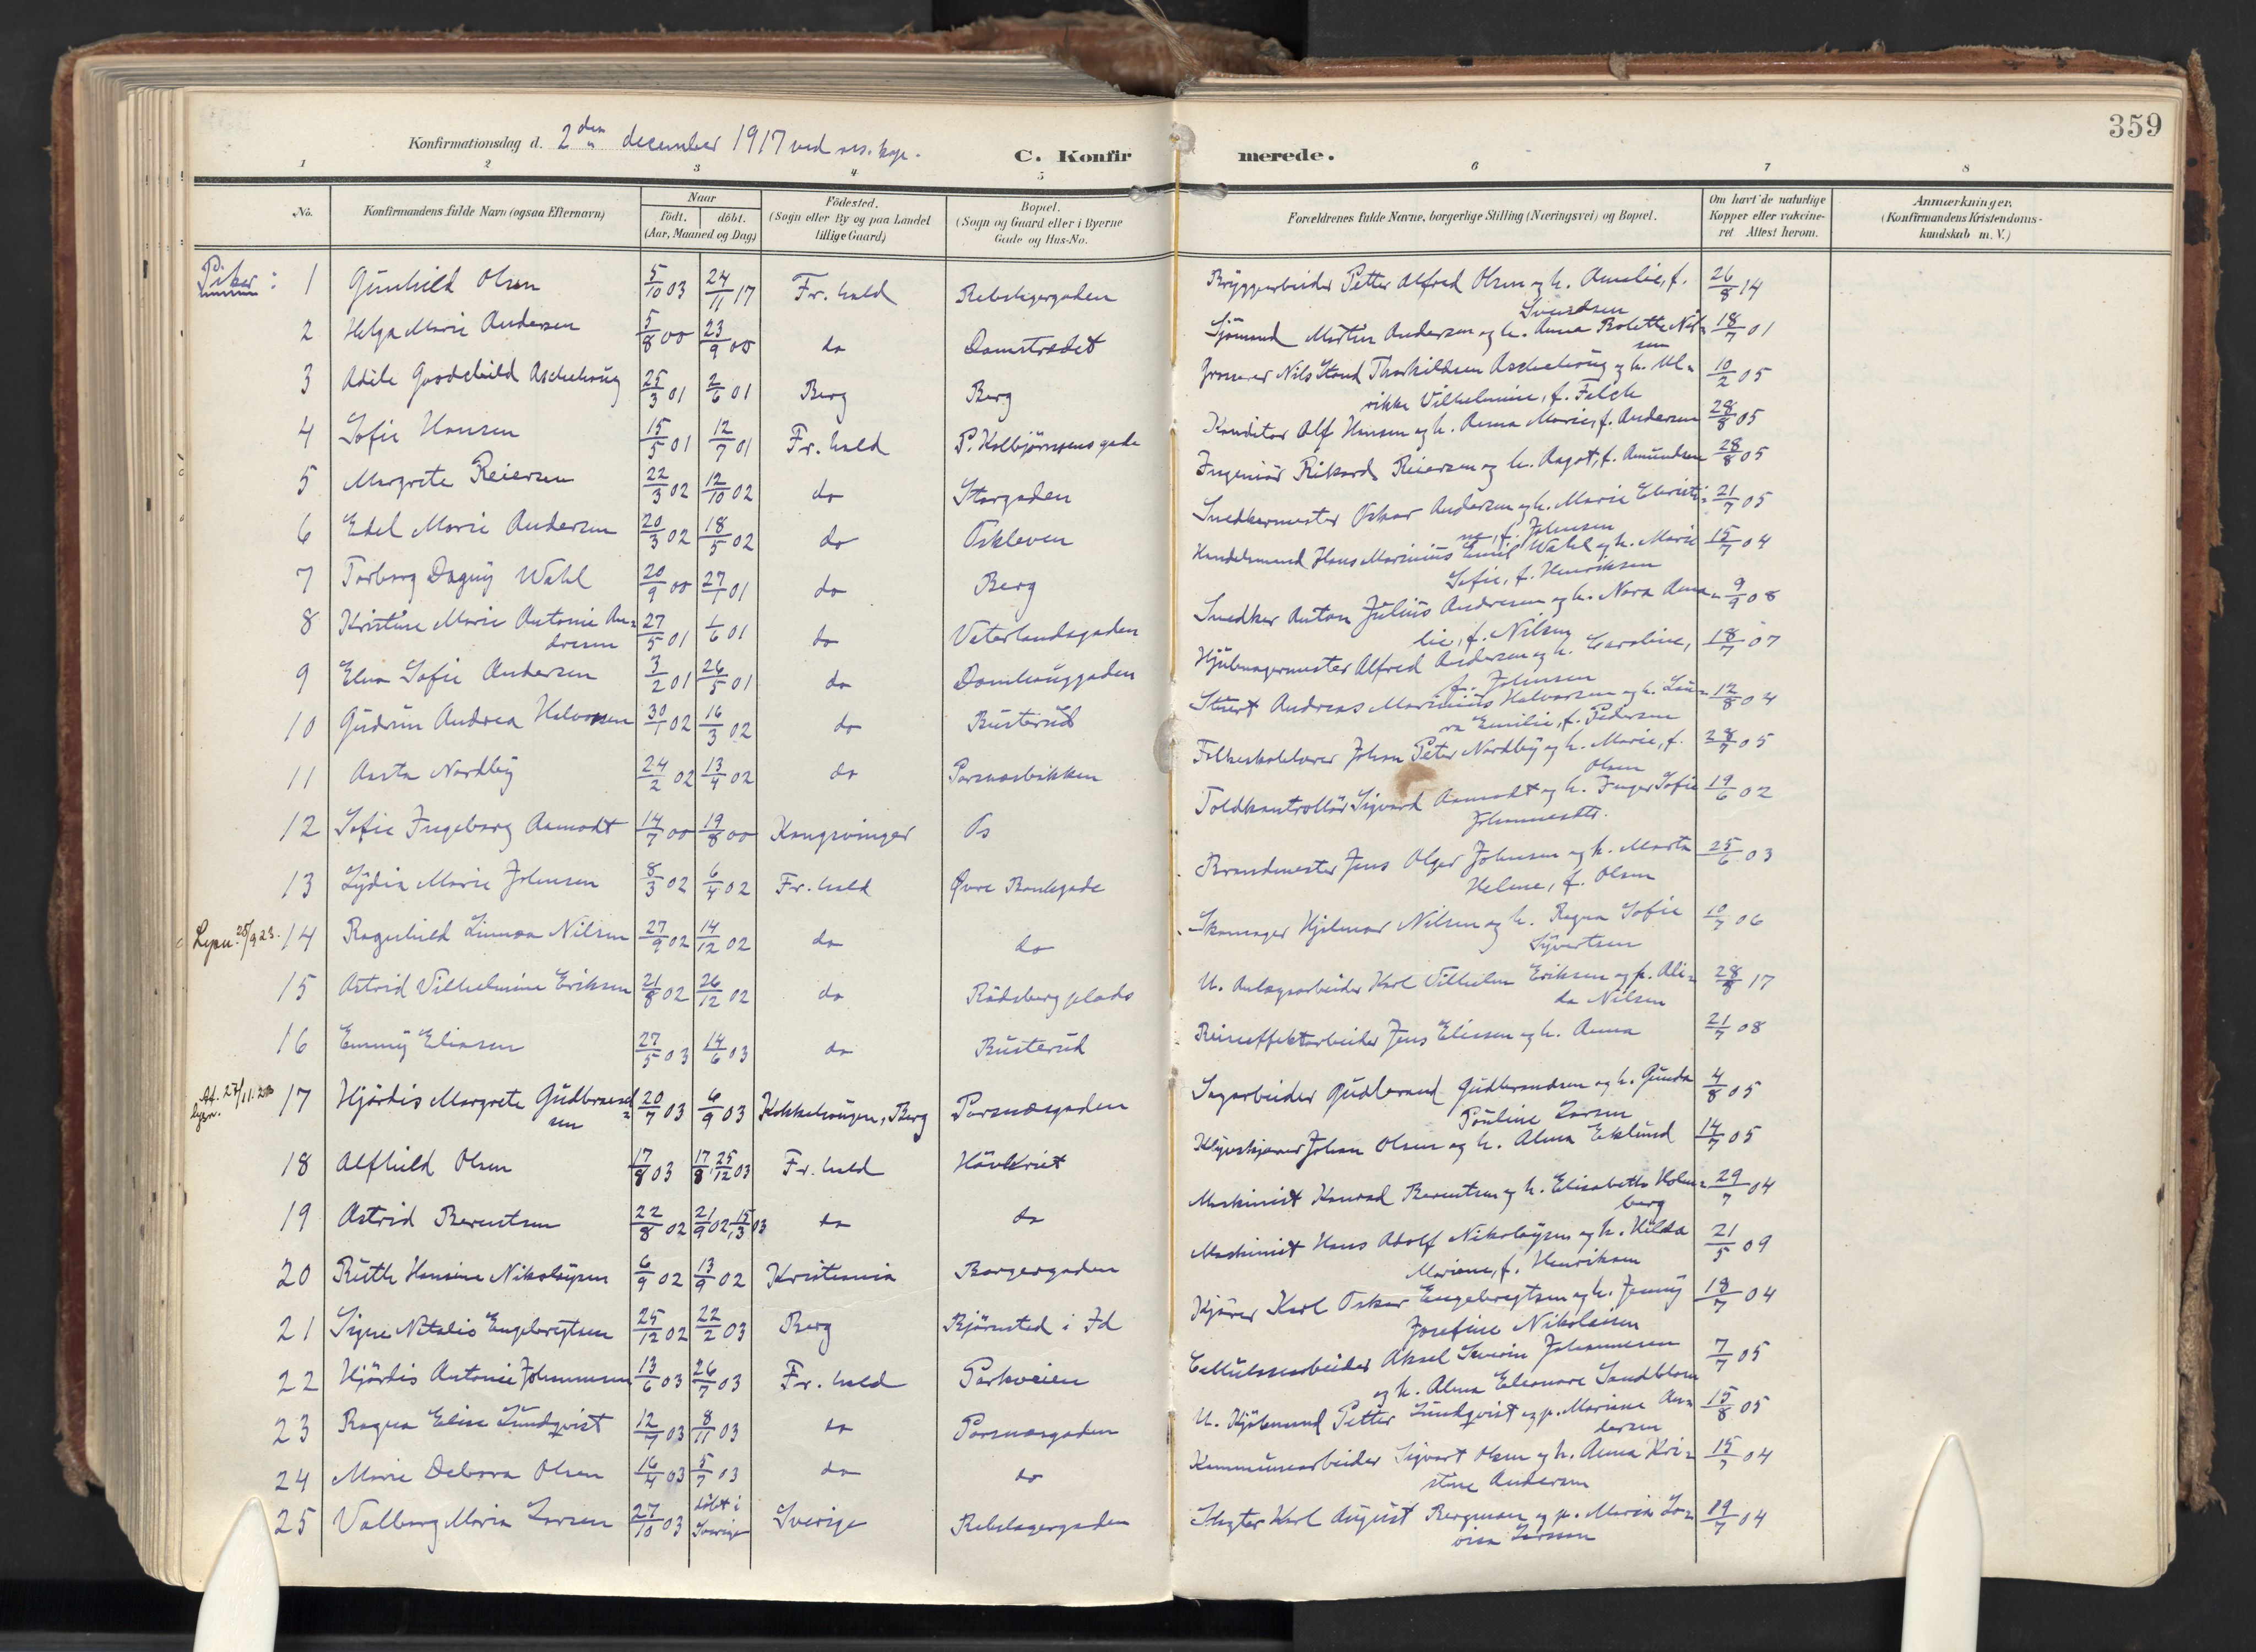 359
Konfirmationsdag d. 2den december 1917 ved res. kap.
C. Konfirmerede.
1 2 3 4 5 6 7 8
No.
Konfirmandens fulde Navn (ogsaa Efternavn)
Naar
födt. döbt.
(Aar, Maaned og Dag)
Födested.
(Sogn eller By og paa Landet
tillige Gaard)
Bopæl.
(Sogn og Gaard eller i Byerne
Gade og Hus-No.
Forældrenes fulde Navne, borgerlige Stilling (Næringsvei) og Bopæl.
Om havt de naturlige
Kopper eller vakcine-
ret Attest herom.
Anmærkninger,
(Konfirmandens Kristendoms-
kundskab m. V.)
Piker:
1 Gunhild Olsen 5/10 03 24/11 17 Fr.hald Rebslagergaden Bryggearbeider Petter Alfred Olsen og h. Amalie, f. 26/8 14
Svendsen
2 Helga Marie Andersen 5/8 00 23/9 00 do Damstrædet Sjømand Martin Andersen og h. Anna Bolette Nil= 18/7 01
sen
3 Adile Goodchild Aschehoug 25/3 01 2/6 01 Berg Berg Grosserer Nils Stand Thorkildsen Aschehoug og h. Ul= 10/2 05
rikke Vilhelmine, f. Falch
4 Sofie Hansen 15/5 01 12/7 01 Fr.hald P. Kolbjörnsens gade Konditor Alf Hansen og h. Anna Marie, f. Andersen 28/8 05
5 Margrete Reiersen 22/3 02 12/10 02 do Storgaden Ingeniör Rikard Reiersen og h. Aagot, f. Amundsen 28/8 05
6 Edel Marie Andersen 20/3 02 18/5 02 do Oskleven Snedkermester Oskar Andersen og h. Marie Christi= 21/7 05
ne, f. Johnsen
7 Torborg Dagny Wahl 20/9 00 27/1 01 do Berg Handelsmand Hans Marinius Emil Wahl og h. Marie 15/7 04
Sofie, f. Henriksen
8 Kristine Marie Antonie An= 27/5 01 1/6 01 do Vaterlandsgaden Snedker Anton Julius Andresen og h. Nora Ama= 9/9 08
dresen lie, f. Nilsen
9 Elna Sofie Andersen 3/2 01 26/5 01 do Damhauggaden Hjulmagermester Alfred Andersen og h. Caroline, 18/7 07
f. Johnsen
10 Gudrun Andrea Halvorsen 30/1 02 16/3 02 do Busterud Stuert Andreas Marinius Halvorsen og h. Lau= 12/8 04
ra Emilie, f. Pedersen
11 Aasta Nordby 24/2 02 13/4 02 do Porsnæsbakken Folkeskolelærer Johan Peter Nordby og h. Marie, f. 28/7 05
Olsen
12 Sofie Ingeborg Aamodt 14/7 00 19/8 00 Kongsvinger Os Toldkontrollör Sigvard Aamodt og h. Inger Sofie 19/6 02
Johannesdtr.
13 Lydia Marie Johnsen 8/3 02 6/4 02 Fr.hald Øvre Bankgade Brandmester Jens Olger Johnsen og h. Marta 25/6 03
Helene, f. Olsen
Lysn. 25/9 23. 14 Ragnhild Linnea Nilsen 27/9 02 14/12 02 do do Skomager Hjalmar Nilsen og h. Ragna Sofie 10/7 06
Syvertsen
15 Astrid Vilhelmine Eriksen 21/8 02 26/12 02 do Rödsberg plads U. Anlægsarbeider Karl Vilhelm Eriksen og p. Ali= 28/8 17
da Nilsen
16 Emmy Eliasen 27/5 03 14/6 03 do Busterud Reiseeffektarbeider Jens Eliesen og h. Anna 21/7 08
At. 27/11.23
Lysn.
17 Hjördis Margrete Gudbrand= 20/7 03 6/9 03 Kokkehaugen, Berg Porsnæsgaden Sagarbeider Gudbrand Gudbrandsen og h. Gunda 4/8 05
sen Pauline Larsen
18 Alfhild Olsen 17/8 03 17/8, 25/12 03 Fr.hald Hövleriet Klyvskjærer Johan Olsen og h. Alma Eklund 14/7 05
19 Astrid Berentsen 22/8 02 21/9 02, 15/3 03 do do Maskinist Konrad Berentsen og h. Elisabeth Holm= 29/7 04
berg
20 Ruth Hansine Nikolaysen 6/9 02 13/9 02 Kristiania Borgergaden Maskinist Hans Adolf Nikolaysen og h. Hilda 21/5 09
Mariane, f. Henriksen
21 Signe Natalie Engebregtsen 25/12 02 22/2 03 Berg Bjørnsted i Id Kjörer Karl Oskar Engebregtsen og h. Jenny 18/7 04
Josefine Nikolaisen
22 Hjördis Antonie Johannesen 13/6 03 26/7 03 Fr.hald Parkveien Cellulosearbeider Aksel Severin Johannesen 7/7 05
og h. Alma Eleonore Sandblom
23 Ragna Elise Lundqvist 12/7 03 8/11 03 do Porsnæsgaden U. Kjöbmand Petter Lundqvist og p. Mariane An= 15/8 05
dersen
24 Marie Debora Olsen 16/4 03 5/7 03 do do Kommunearbeider Sigvart Olsen og h. Anna Kri= 15/7 04
stine Andersen
25 Valborg Maria Larsen 27/10 03 döbt i Sverige Sverige Rebslagergaden Slagter Karl August Bergman og p. Maria Lo= 19/7 04
visa Larsson